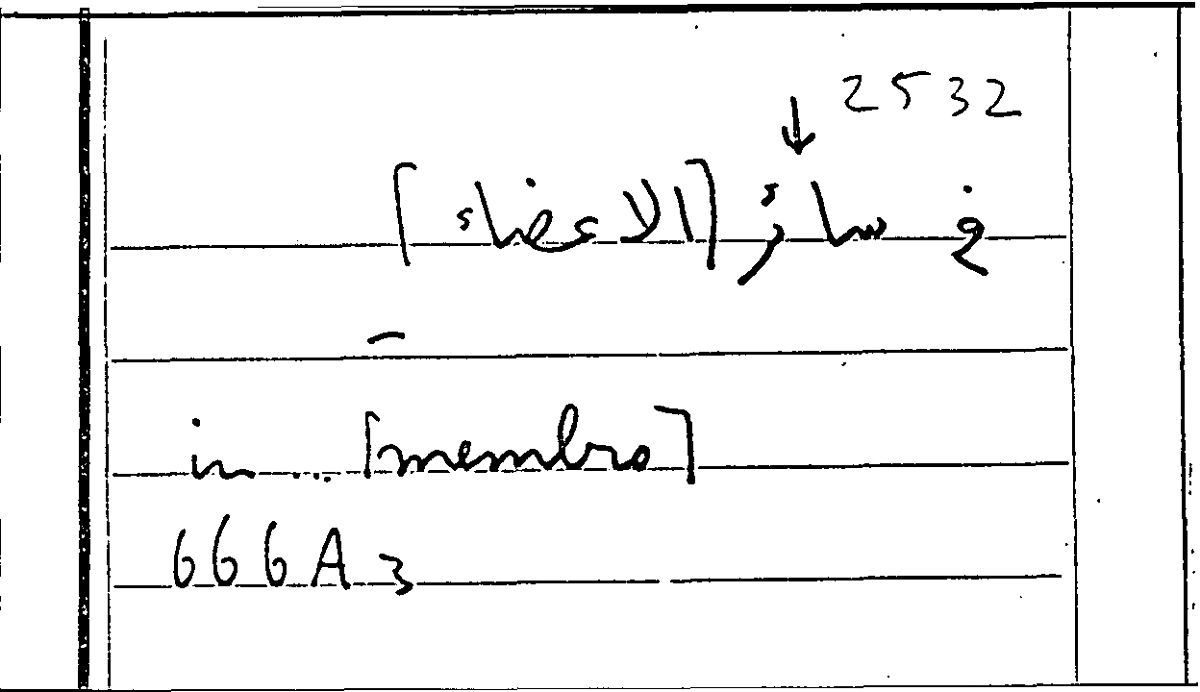 ↓ 2532
في سائر [الاعضاء]
in ... [membro]
666A3